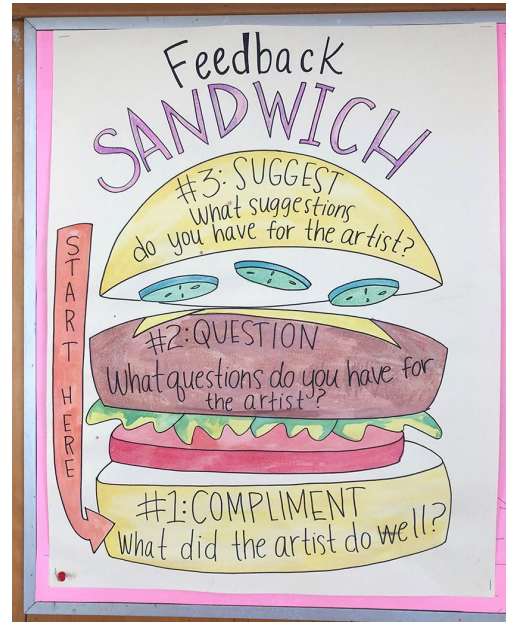 Feedback
SANDWICH
#3: SUGGEST
What suggestions
do you have for the artist?
START HERE
#2: QUESTION
What questions do you have for
the artist?
#1: COMPLIMENT
What did the artist do well?